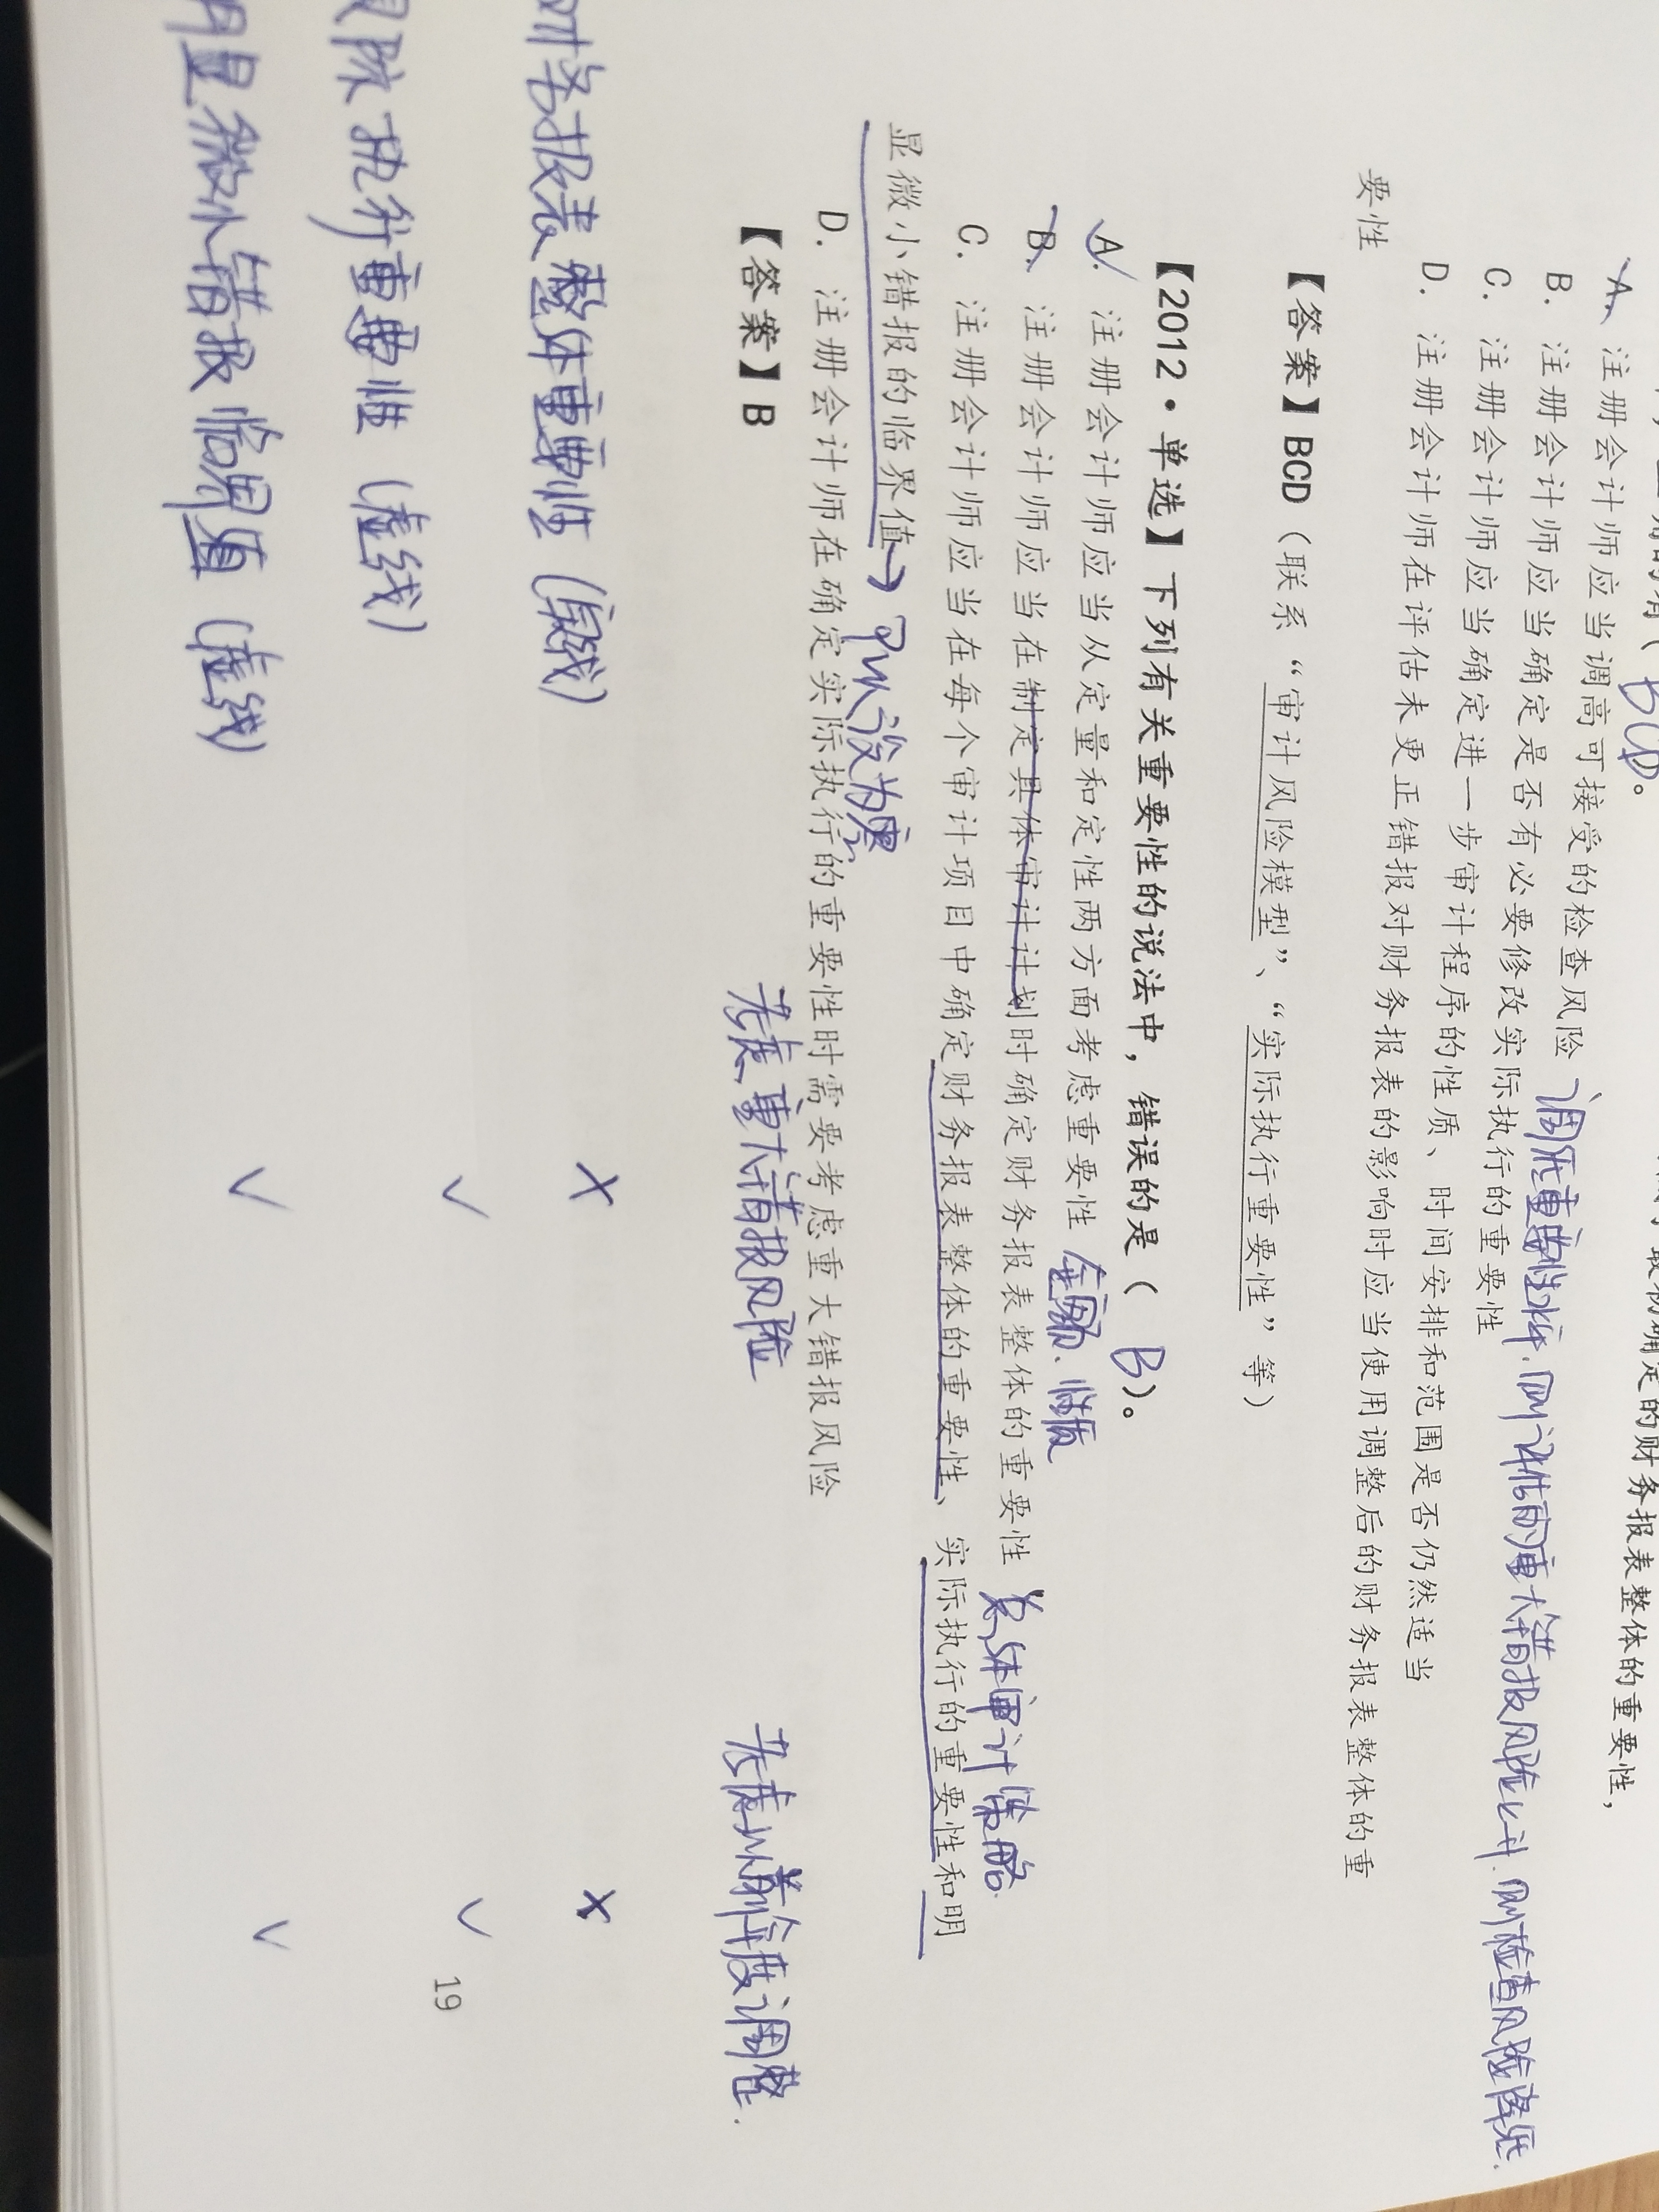 最初确定的财务报表整体的重要性，
BCD。
A. 注册会计师应当调高可接受的检查风险 调低重要性水平，则评估的重大错报风险上升，则检查风险降低.
B. 注册会计师应当确定是否有必要修改实际执行的重要性
C. 注册会计师应当确定进一步审计程序的性质、时间安排和范围是否仍然适当
D. 注册会计师在评估未更正错报对财务报表的影响时应当使用调整后的财务报表整体的重
要性
【答案】BCD（联系“审计风险模型”、“实际执行重要性”等）
【2012·单选】下列有关重要性的说法中，错误的是（ B ）。
A. 注册会计师应当从定量和定性两方面考虑重要性 金额、性质
B. 注册会计师应当在制定具体审计计划时确定财务报表整体的重要性 总体审计策略.
C. 注册会计师应当在每个审计项目中确定财务报表整体的重要性、实际执行的重要性和明
显微小错报的临界值→可以设为零
D. 注册会计师在确定实际执行的重要性时需要考虑重大错报风险
【答案】B 考虑重大错报风险 考虑以前年度调整.
财务报表整体重要性（实线） × ×
实际执行重要性（虚线） √ √
19
明显微小错报临界值（虚线） √ √